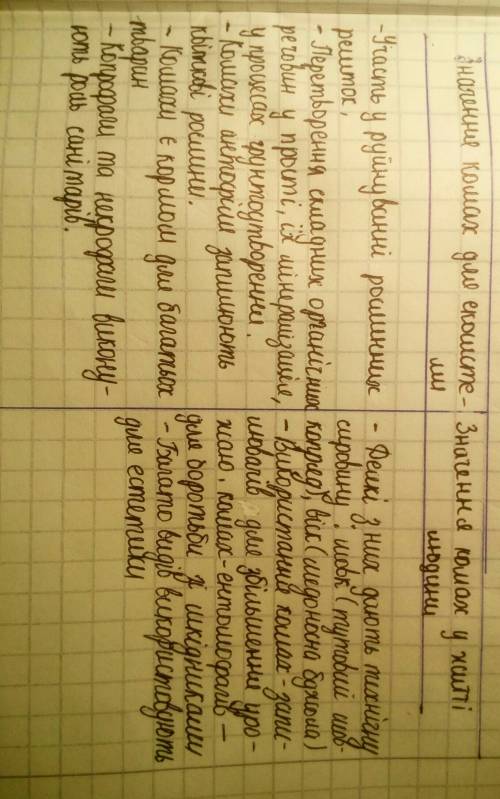 Значення комах для екосисте-
ми
- Участь у руйнуванні рослинних
решток,
- Перетворення складних органічних
речовин у прості, їх мінералізація,
у процесах ґрунтоутворення.
- Комахи антофіли запилюють
квіткові рослини.
- Комахи є кормом для багатьох
тварин
- Копрофаги та некрофаги викону-
ють роль санітарів.
Значення комах у житті
людини
- Деякі з них дають технічну
сировину: шовк (тутовий шов-
копряд), віск (медоносна бджола)
- Використання комах-запи-
лювачів для збільшення уро-
жаю, комах-ентомофагів -
для боротьби зі шкідниками
- Багато видів використовують
для естетики